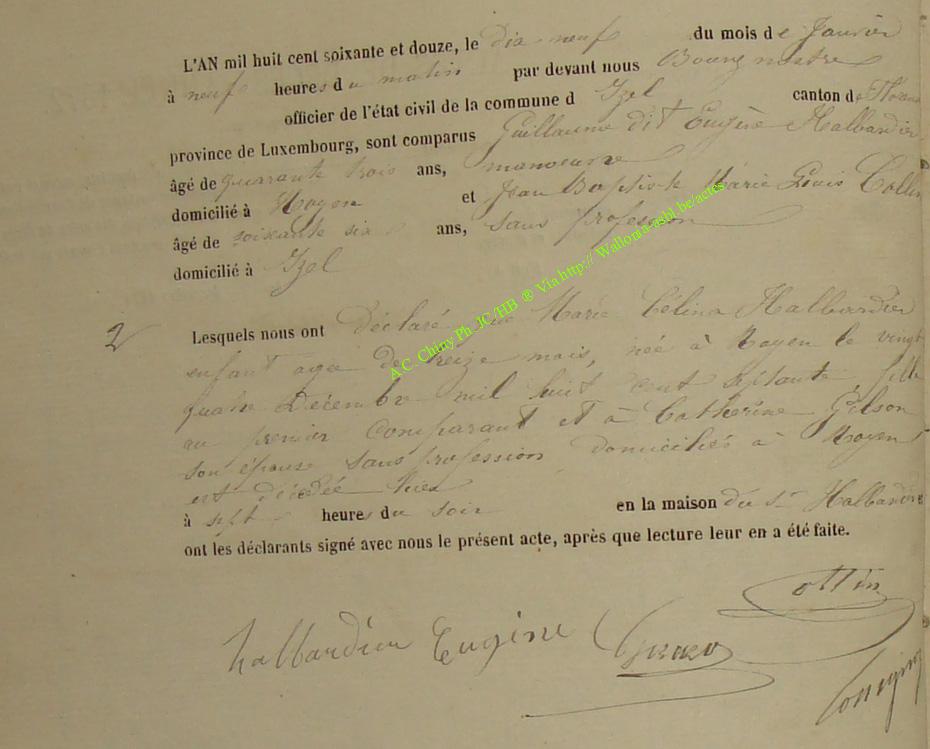 L'AN mil huit cent soixante et douze, le dix neuf du mois de Janvier
à neuf heures du matin par devant nous Bourgmestre
officier de l'état civil de la commune d Izel canton de
province de Luxembourg, sont comparus Guillaume dit Eugène Halbardier
âgé de quarante trois ans, manoeuvre
domicilié à Moyen et Jean Baptiste Marie Louis Collin
âgé de soixante six ans, sans profession
domicilié à Izel
2 Lesquels nous ont déclaré que Marie Célina Halbardier
enfant agée de treize mois, née à Moyen le vingt
quatre Décembre mil huit cent septante, fille
au premier comparant et à Catherine Gilson
son épouse sans profession domiciliés à Moyen
est décédée hier
à sept heures du soir en la maison du Sr Halbardier
ont les déclarants signé avec nous le présent acte, après que lecture leur en a été faite.
halbardier Eugène
A.C. Chiny Ph JC/HB ® Via http:// Wallonia-asbl.be/actes